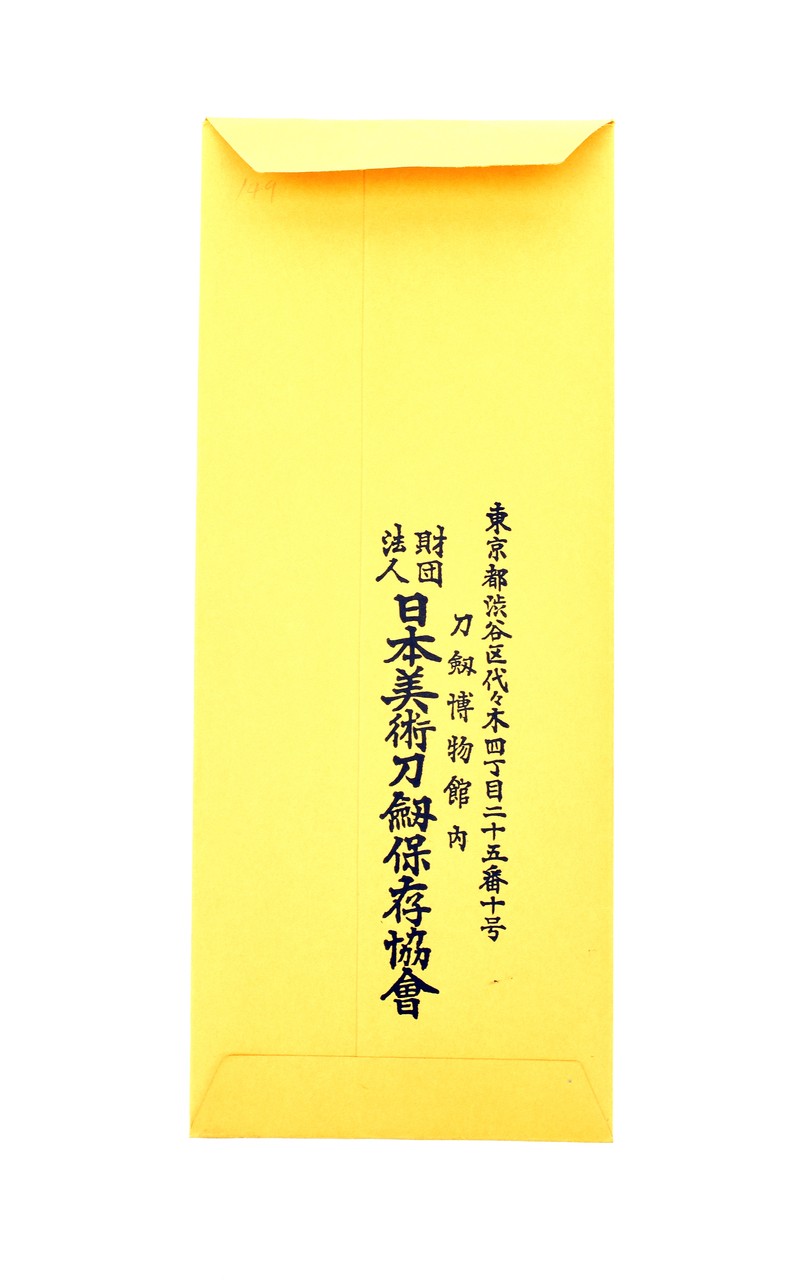 149
東京都渋谷区代々木四丁目二十五番十号
刀劔博物館内
財団
法人
日本美術刀劔保存協會